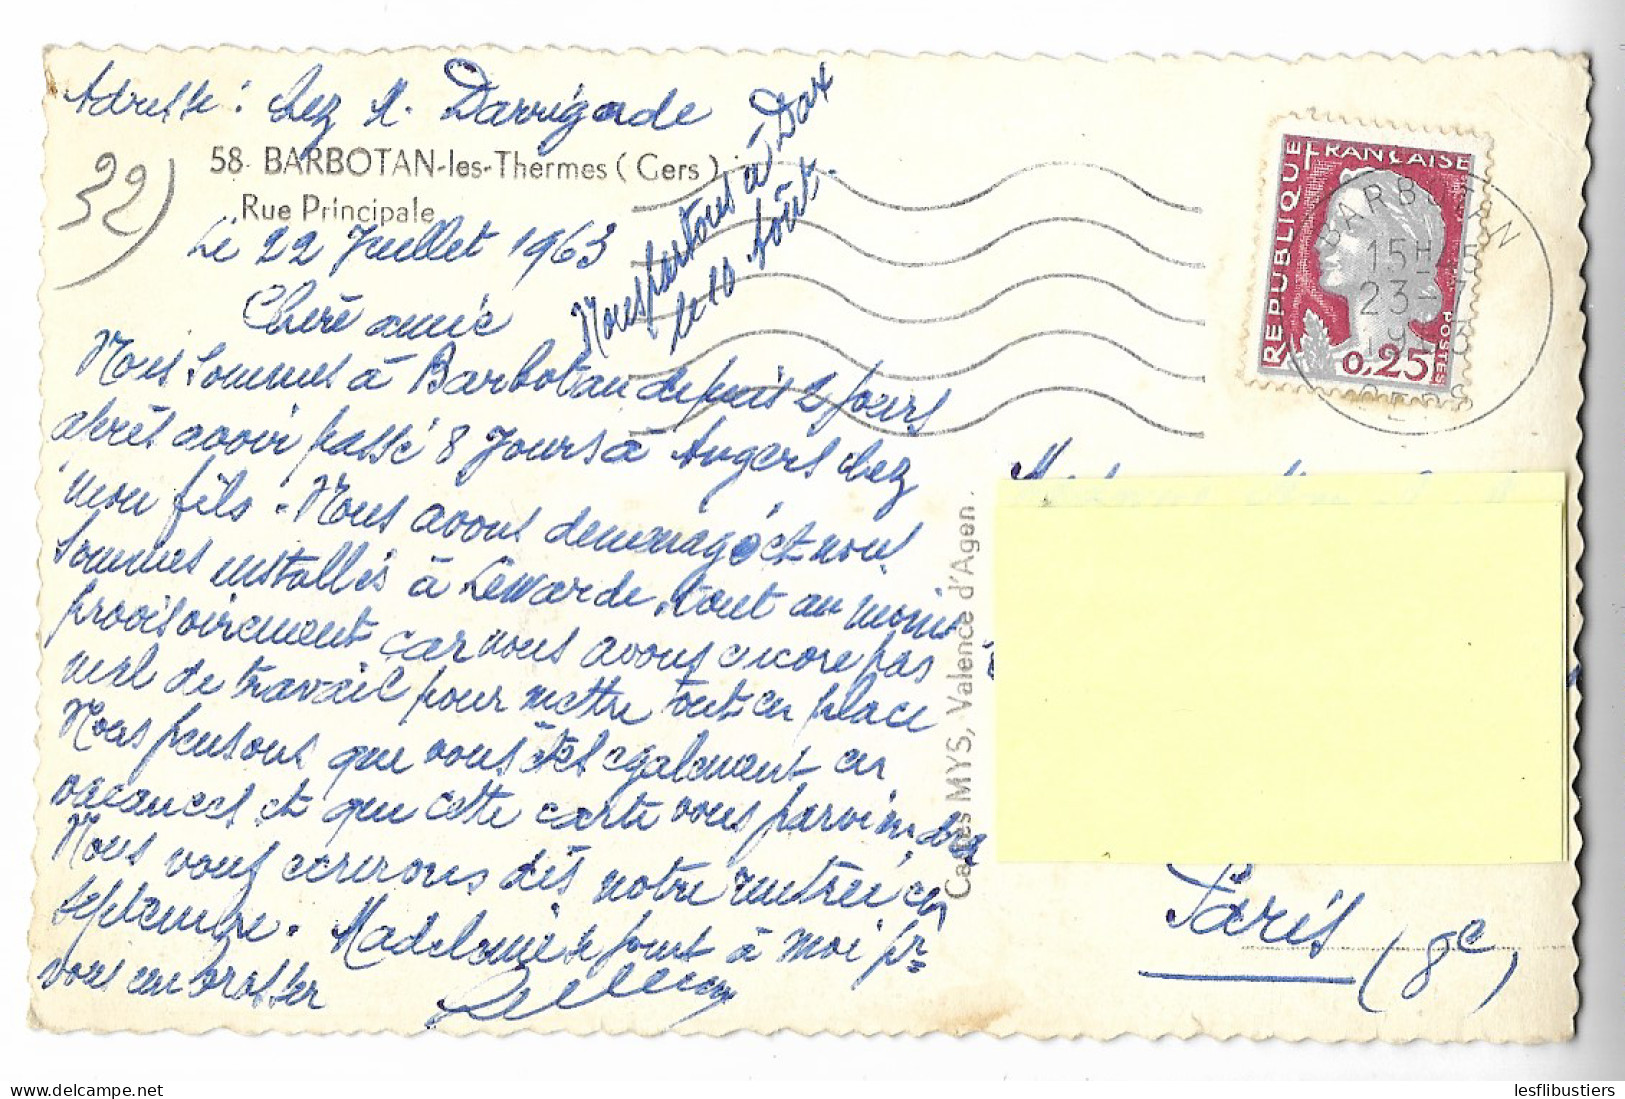 Adresse : chez M. Darrigade
32)
58- BARBOTAN-les-Thermes (Gers)
Rue Principale
Le 22 Juillet 1963
Nous partons à Dax
le 10 Août.
Chère amie
Nous sommes à Barbotan depuis 2 jours
après avoir passé 8 Jours à Angers chez
mon fils - Nous avons demenagé et nous
sommes installés à Lewarde, tout au moins
provisoirement car nous avons encore pas
mal de travail pour mettre tout en place
Nous pensons que vous êtes egalement en
vacances et que cette carte vous parviendra
Nous vous ecrirons dès notre rentrée en
septembre. Madeleine se joint à moi pr
vous embrasser
Cartes MYS, Valence d'Agen.
REPUBLIQUE FRANÇAISE
0,25
POSTES
BARBOTAN
15H
23-7
GERS
Paris (8e)
delcampe.net
lesflibustiers